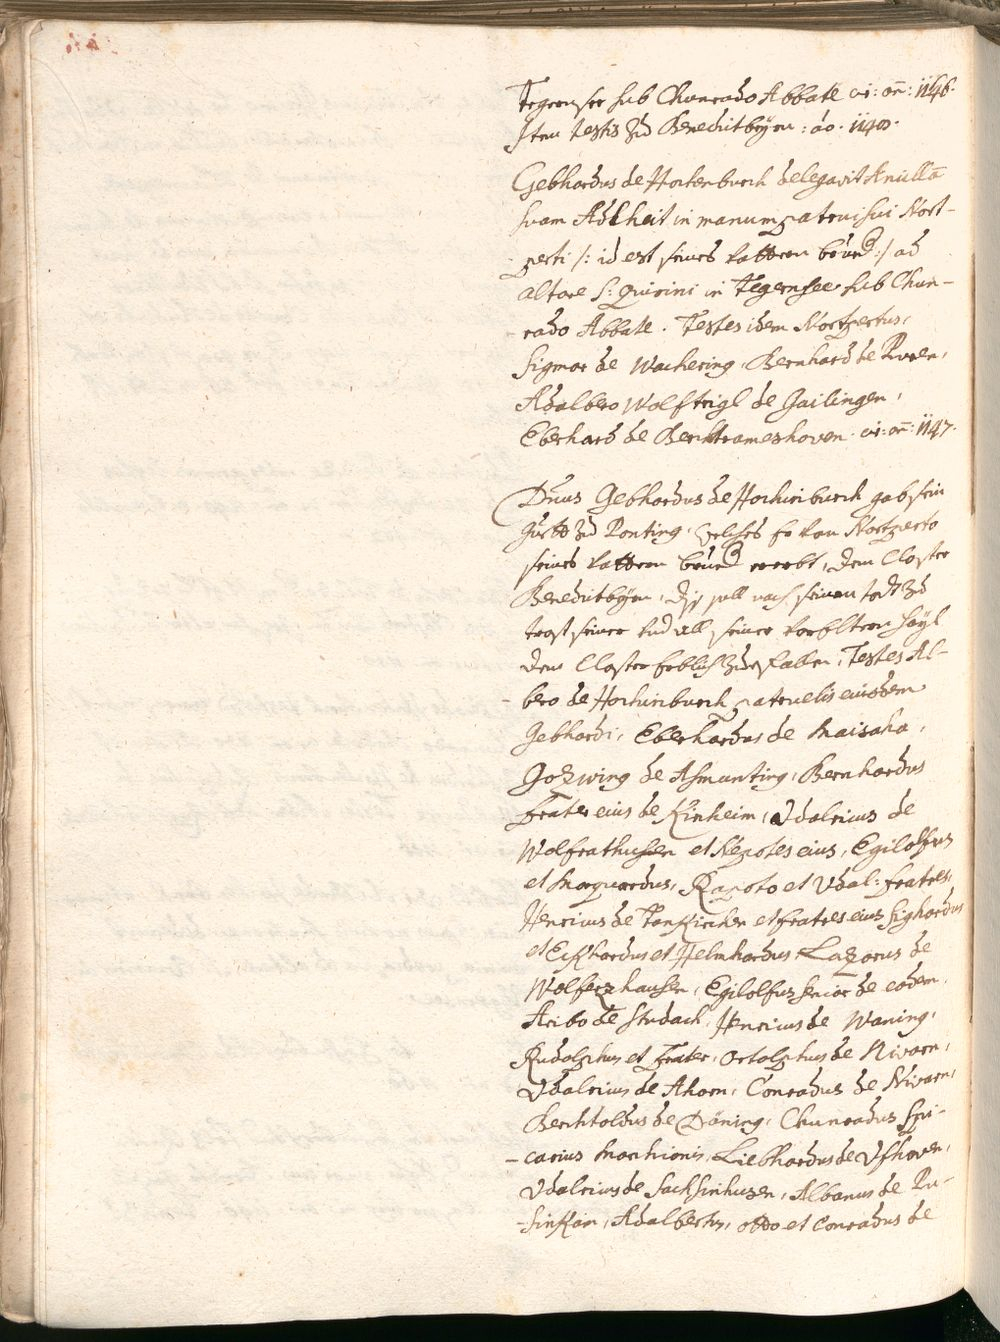 Tegernsee sub Chunrado Abbate ci: an: 1146.
Item testis zu Benedictbeyrn: ao. 1140.
Gebhardus de Hochenburch delegavit Ancillã
suam Adlheit in manum patrui sui Nort-
perti /: id est seines Vattern brued:/ ad
altare S: Quirini in Tegernsee sub Chun-
rado Abbate. Testes idem Nortpertus,
Sigmar de Wachering, Bernhard de
Adalbero Wolftrigl de Gailingen,
Eberhard de Berchtrameshoven. ci: an: 1147.
Dnus Gebhardus de Hochinburch gab sein
Guett zu Ponting, welches er von Nortperto
seines Vattern brued ererbt, dem Closter
Benedictbeyrn, diß soll nach seinem todt zu
trost seiner und all seiner voreltern Sayl
dem Closter zuefallen, Testes Al-
bero de Hochinburch patruelis eiusdem
Gebhardi, Eberhardus de Maisaha,
Gozwing de Asmunting, Bernhardus
frater eius de Kinheim, Vdalricus de
Wolfrathusen et Nepotes eius, Egilolfus
et Marquardus, Rapoto et Vdal: fratres,
Henricus de Tankirchen et fratres eius Sighardus
et Eckhardus et Helmhardus Lazarus de
Wolferzhausen, Egilolfus senior de eodem,
Aribo de Studach, Henricus de Waning,
Rudolphus et frater, Ortolphus de Nivarn,
Vdalricus de Ahorn, Conradus de Nivarn,
Berchtoldus de Döning, Chunradus Spi-
-carius Marchionis, Liebhardus de Vfhoven,
Vdalricus de Sachsinhusen, Albanus de Ru-
-sinkan, Adalbertus, Otto et Conradus de